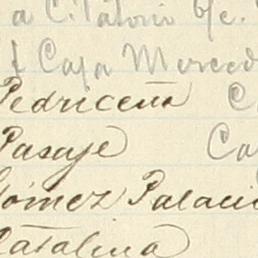 a C. Tatoni b/c.
f Caja Merced
Pedriceña C
Pasaje Ca
Gómez Palacio
Catalina